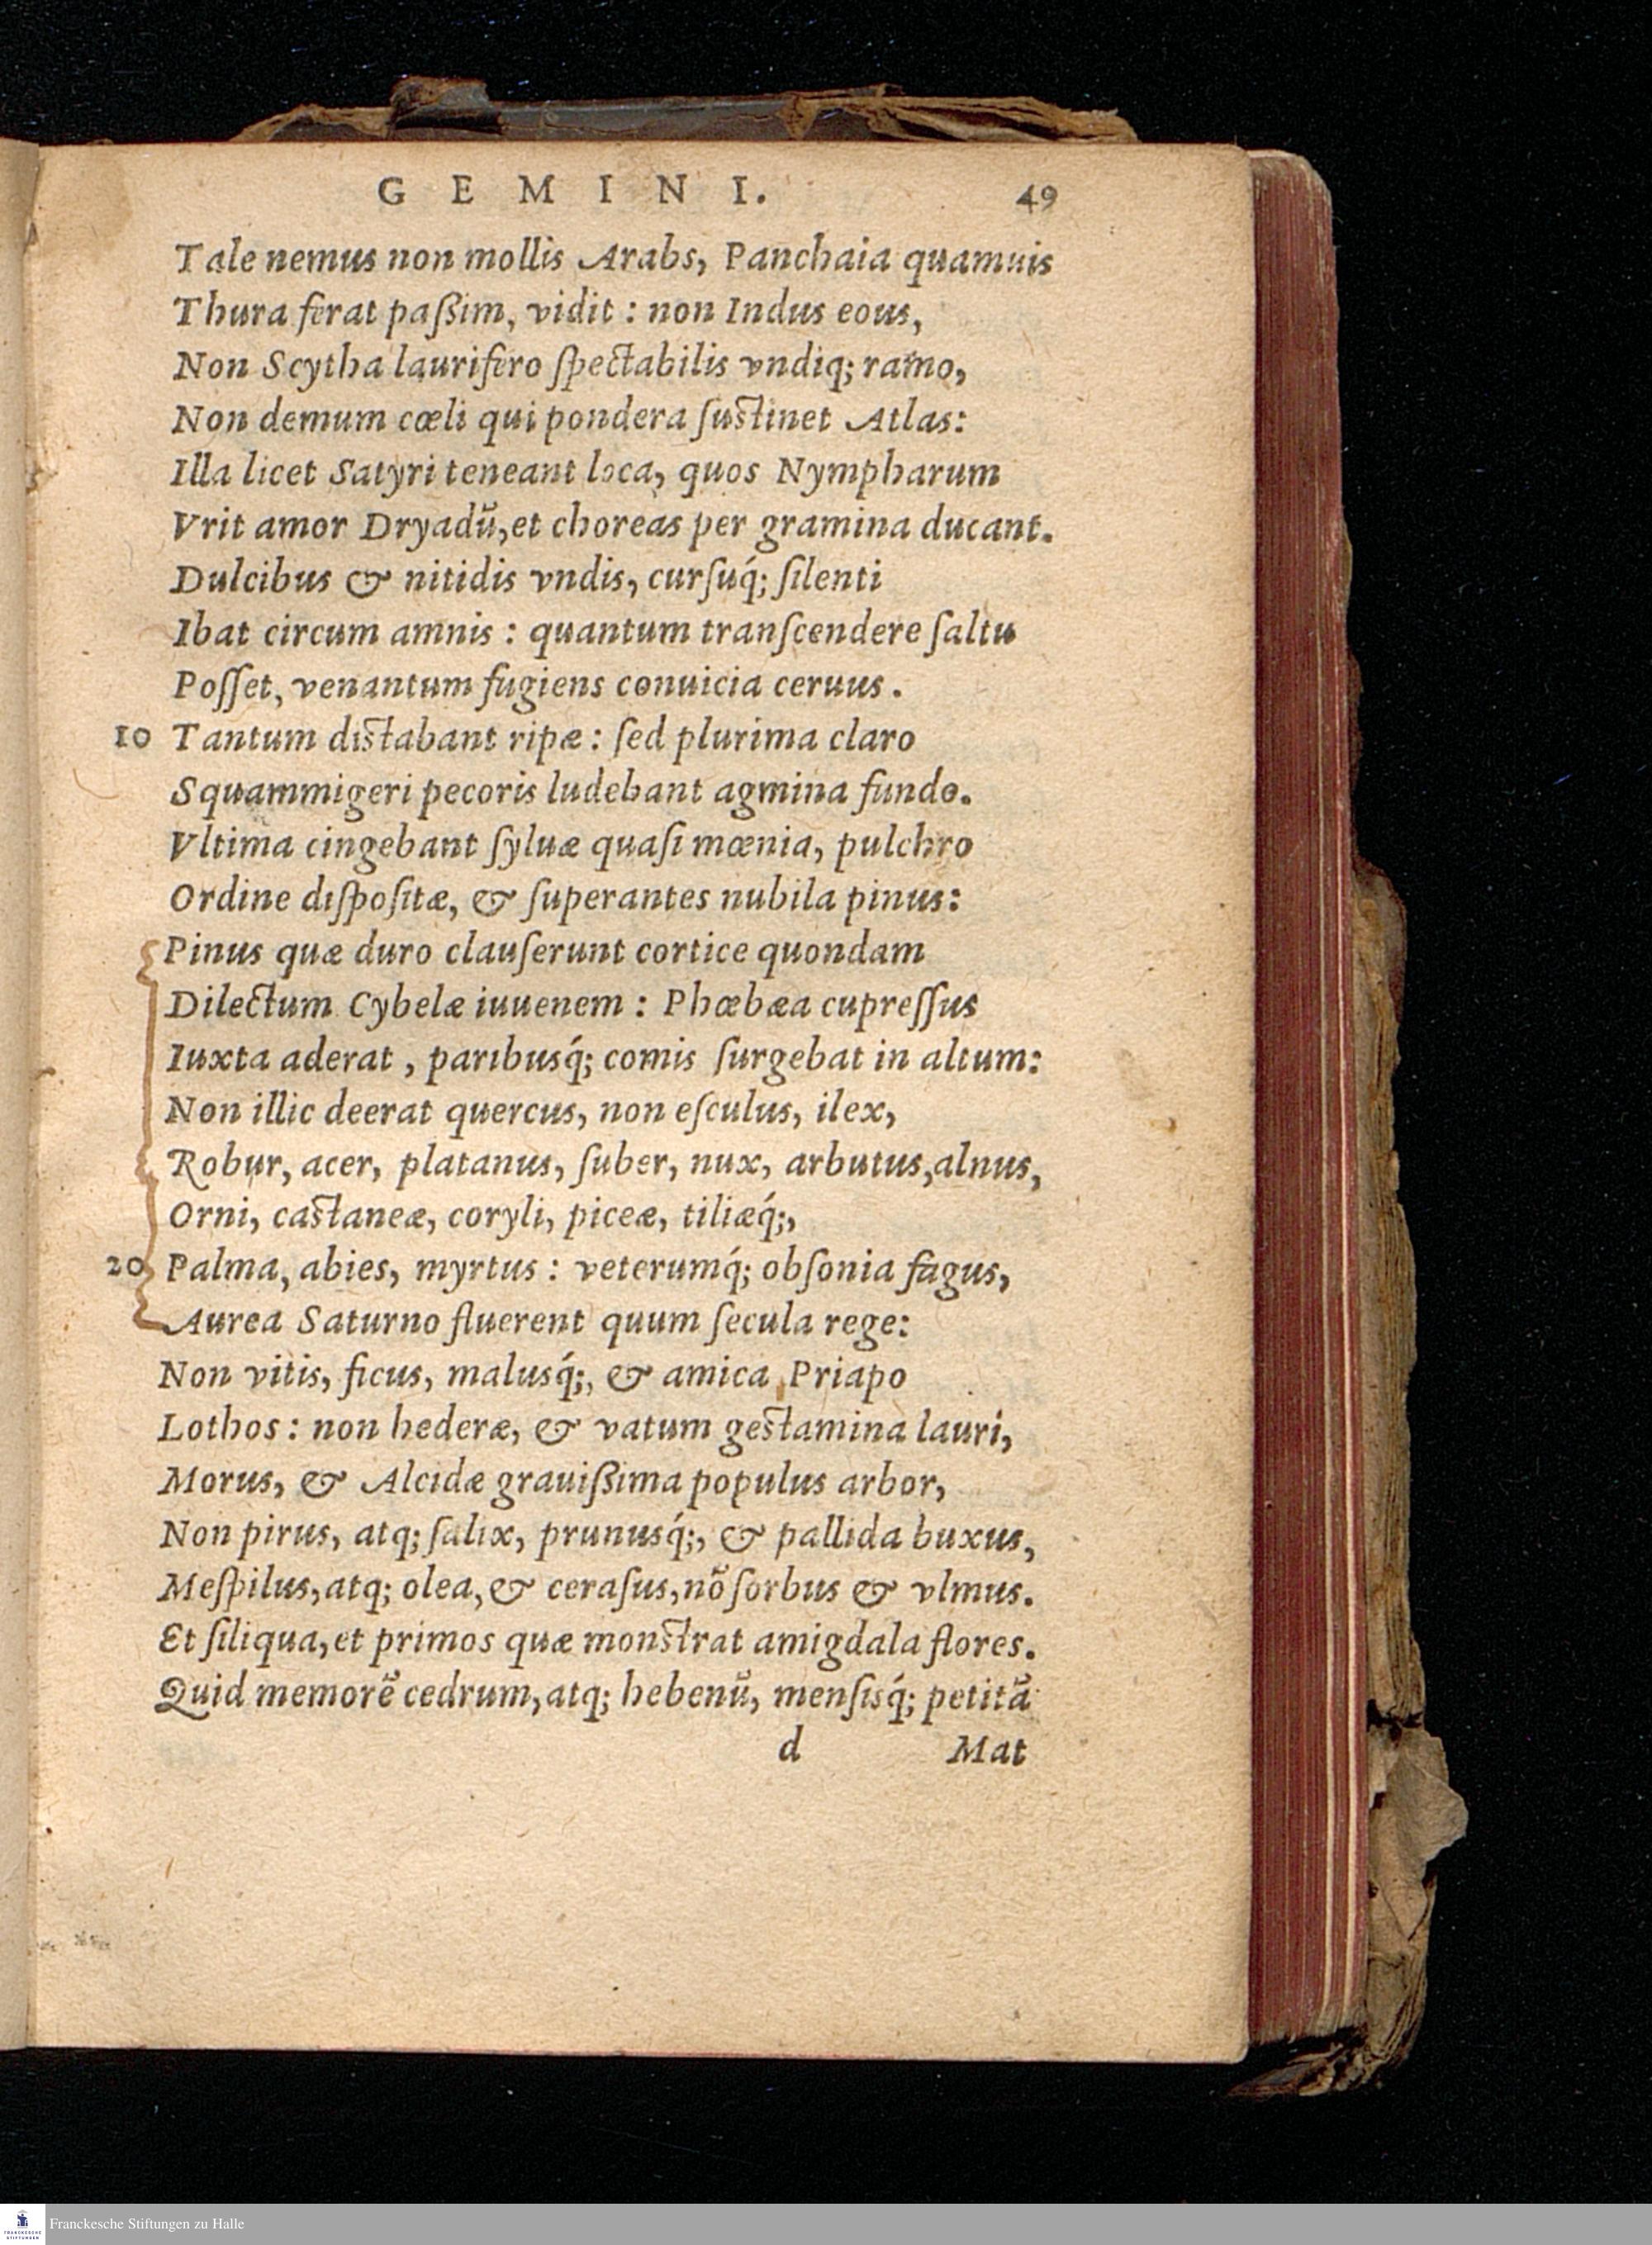 GEMINI. 49
Tale nemus non mollis Arabs, Panchaia quamuis
Thura ferat paßim, vidit : non Indus eous,
Non Scytha laurifero ſpectabilis vndiq; ramo,
Non demum cœli qui pondera ſustinet Atlas:
Illa licet Satyri teneant loca, quos Nympharum
Vrit amor Dryadū, et choreas per gramina ducant.
Dulcibus & nitidis vndis, curſuq́; ſilenti
Ibat circum amnis : quantum tranſcendere ſaltu
Poſſet, venantum fugiens conuicia ceruus.
10 Tantum distabant ripæ : ſed plurima claro
Squammigeri pecoris ludebant agmina fundo.
Vltima cingebant ſyluæ quaſi mœnia, pulchro
Ordine diſpoſitæ, & ſuperantes nubila pinus:
Pinus quæ duro clauſerunt cortice quondam
Dilectum Cybelæ iuuenem : Phœbæa cupreſſus
Iuxta aderat, paribusq́; comis ſurgebat in altum:
Non illic deerat quercus, non eſculus, ilex,
Robur, acer, platanus, ſuber, nux, arbutus, alnus,
Orni, castaneæ, coryli, piceæ, tiliæq́;,
20 Palma, abies, myrtus : veterumq́; obſonia fagus,
Aurea Saturno fluerent quum ſecula rege:
Non vitis, ficus, malusq́;, & amica Priapo
Lothos : non hederæ, & vatum gestamina lauri,
Morus, & Alcidæ grauißima populus arbor,
Non pirus, atq; ſalix, prunusq́;, & pallida buxus,
Meſpilus, atq; olea, & ceraſus, nō ſorbus & vlmus.
Et ſiliqua, et primos quæ monstrat amigdala flores.
Quid memorē cedrum, atq; hebenū, menſisq́; petitā
d Mat
Franckesche Stiftungen zu Halle